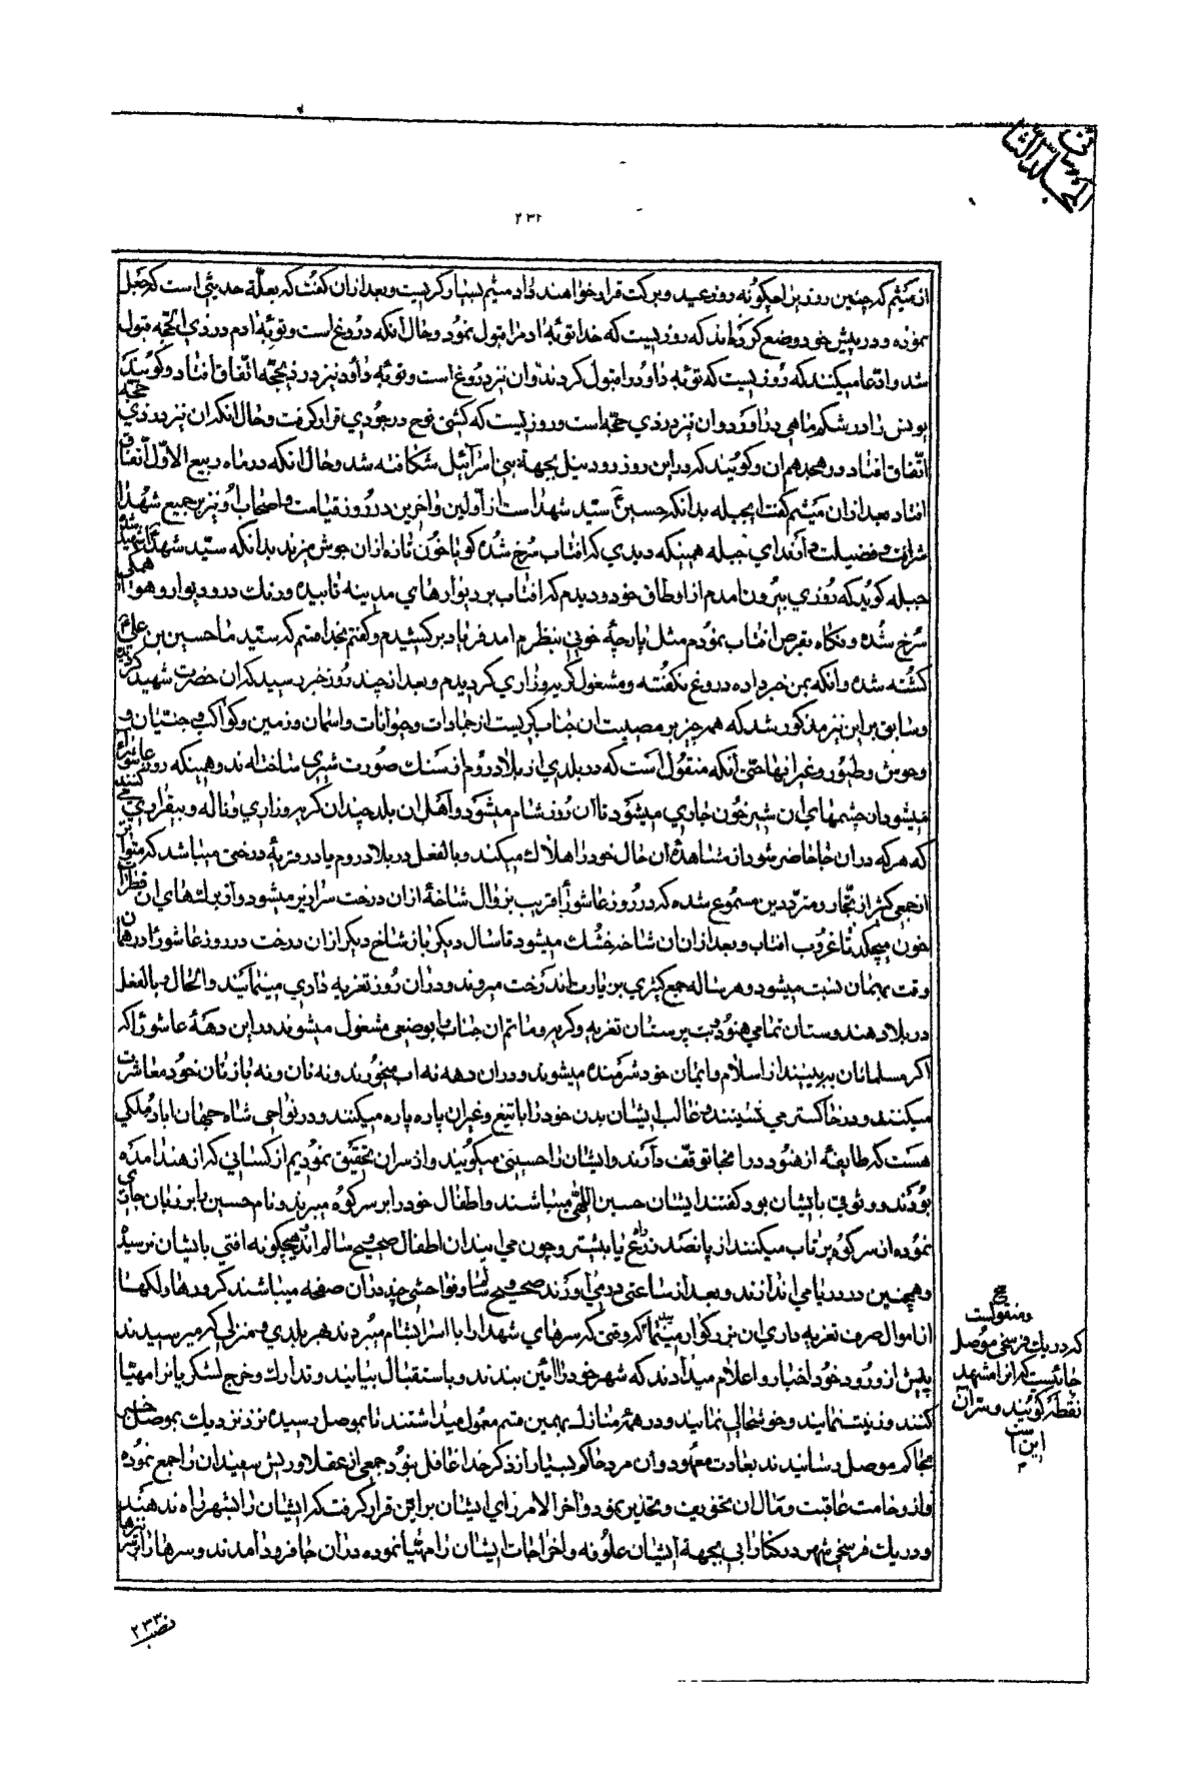 المجلد الثانی
۲۳۲
از میثم که چنین روز را چگونه روز عید و برکت قرار خواهند داد میثم بسیار گریست و بعد ازان گفت که بعلّة حدیثی است که جعل
نموده و در پیش خود وضع کرده‌اند که روزیست که خدا توبهٔ ادم را قبول نمود و حال انکه دروغ است و توبهٔ ادم در ذی الحجّه قبول
شد و ادّعا میکنند که روزیست که توبهٔ داود را قبول کردند و ان نیز دروغ است و توبهٔ داود نیز در ذیحجّه اتّفاق افتاد و گویند که
یونس را در شکم ماهی در اورد و ان نیز در ذی حجّه است و روزیست که کشتی نوح در جودی قرار گرفت و حال انکه ان نیز در ذی حجّه
اتّفاق افتاد در هجدهم ان و گویند که در این روز رود نیل بجههٔ بنی اسرآئیل شکافته شد و حال انکه در ماه ربیع الاوّل اتّفاق
افتاد بعد ازان میثم گفت ای جبله بدانکه حسین ع سیّد شهدا است از اوّلین و اخرین در روز قیامت و اصحاب او نیز بر جمیع شهدا
شرافت و فضیلت دارند ای جبله همینکه دیدی که افتاب سرخ شده گویا خون تازه ازان جوش میزند بدانکه سیّد شهدا شهید شده
جبله گوید که روزی بیرون امدم از اوطاق خود و دیدم که افتاب بر دیوارهای مدینه تابیده و رنک در و دیوار و هوا همگی
سرخ شده و نگاه بقرص افتاب نمودم مثل پارچهٔ خونی بنظرم امد فریاد برکشیدم و گفتم بخدا قسم که سیّد ما حسین بن علی ع
کشته شده و انکه بمن خبر داده دروغ نگفته و مشغول گریه و زاری گردیدم و بعد از چند روز خبر رسید که ان حضرت شهید گردیده
و سابق بر این نیز مذکور شد که همه چیز بر مصیبت ان جناب گریست از جمادات و حیوانات و اسمان و زمین و کواکب و جنّیان و
وحوش و طیور و غیر اینها حتّی انکه منقول است که در بلدی از بلاد روم از سنک صورت شیری ساخته‌اند و همینکه روز عاشورا
میشود از چشمهای ان شیر خون جاری میشود تا ان روز شام میشود و اهل ان بلد چندان گریه و زاری و ناله و بیقراری می کنند
که هر که دران جا حاضر شود از مشاهدهٔ ان حال خود را هلاک میکند و بالفعل در بلاد روم یا در قریهٔ درختی میباشد که متواتراً
از جمعی کثیر از تجّار و متردّدین مسموع شده که در روز عاشورا قریب بزوال شاخهٔ ازان درخت سرازیر میشود و از برکهای ان قطرات
خون میچکد تا غروب افتاب و بعد ازان ان شاخه خشک میشود تا سال دیگر باز شاخ دیگر ازان درخت در روز عاشورا در همان
وقت بهمان نسبت میشود و هر ساله جمع کثیری بزیارت اندرخت میروند و دران روز تعزیه داری مینمایند و الحال و بالفعل
در بلاد هندوستان تمامی هنود و بت پرستان تعزیه و گریه و ماتم ان جناب بوضعی مشغول میشوند در این دههٔ عاشورا که
اکر مسلمانان به بینند از اسلام و ایمان خود شرمنده میشوند و دران دهه نه اب میخورند و نه نان و نه با زنان خود معاشرت
میکنند و در خاکستر می نشینند و غالب ایشان بدن خود را با تیغ و غیران پاره پاره میکنند و در نواحی شاه جهان اباد ملکی
هست که طایفهٔ از هنود در انجا توقّف دارند و ایشان را حسینی میگویند و از سران تحقیق نمودیم از کسانی که از هند امده
بودند و وثوقی بایشان بود گفتند ایشان حسین اللّهی میباشند و اطفال خود را بر سر کوه میبرند و نام حسین را بر زبان جاری
نموده از سر کوه پرتاب میکنند از پانصد ذرع یا بیشتر و چون می ایند ان اطفال صحیح و سالم‌اند هیچگونه افتی بایشان نرسیده
و همچنین در دریا می اندازند و بعد از ساعتی در می اورند صحیح و سالم و فواحشی چند دران صفحه میباشند که کرورها و لکها
از اموال صرف تعزیه داری ان بزرگوار مینمایند که وقتی که سرهای شهدا را با اسرا بشام میبردند هر بلدی و منزلی که میرسیدند
پیش از ورود خود اخبار و اعلام میدادند که شهر خود را ائین ببندند و باستقبال بیایند و تدارک و خرج لشکریانرا مهیّا
کنند و زینت نمایند و خوشحالی نمایند و در همهٔ منازل بهمین قسم معمول میداشتند تا بموصل رسیده نزد نزدیک بموصل خبر
بحاکم موصل رسانیدند بعادت معهود و ان مرد حاکم بسیار از ذکر خدا غافل نبود جمعی از عقلا و ریش سفیدان را جمع نموده
و از وخامت عاقبت و مآل ان تخویف و تحذیر نمود و اخر الامر رای ایشان بر این قرار گرفت که ایشان را بشهر راه ندهند
و در یک فرسخی شهر در کنار ابی بجههٔ ایشان علوفه و اخراجات ایشان را مهیّا نموده دران جا فرود امدند و سرها را بر سر نیزها
و منقولست
که در یک فرسخی موصل
جائیست که انرا مشهد
نقطه گویند و سر ان
این است
۲۳۳
نصب